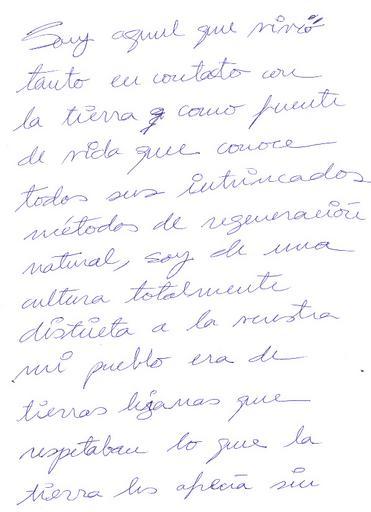 Soy aquel que vivió
tanto en contato con
la tierra y como fuente
de vida que conoce
todos sus intrincados
métodos de regeneración
natural, soy de una
cultura totalmente
distinta a la nuestra
mi pueblo era de
tierras lejanas que
respetaban lo que la
tierra les ofrecía sin